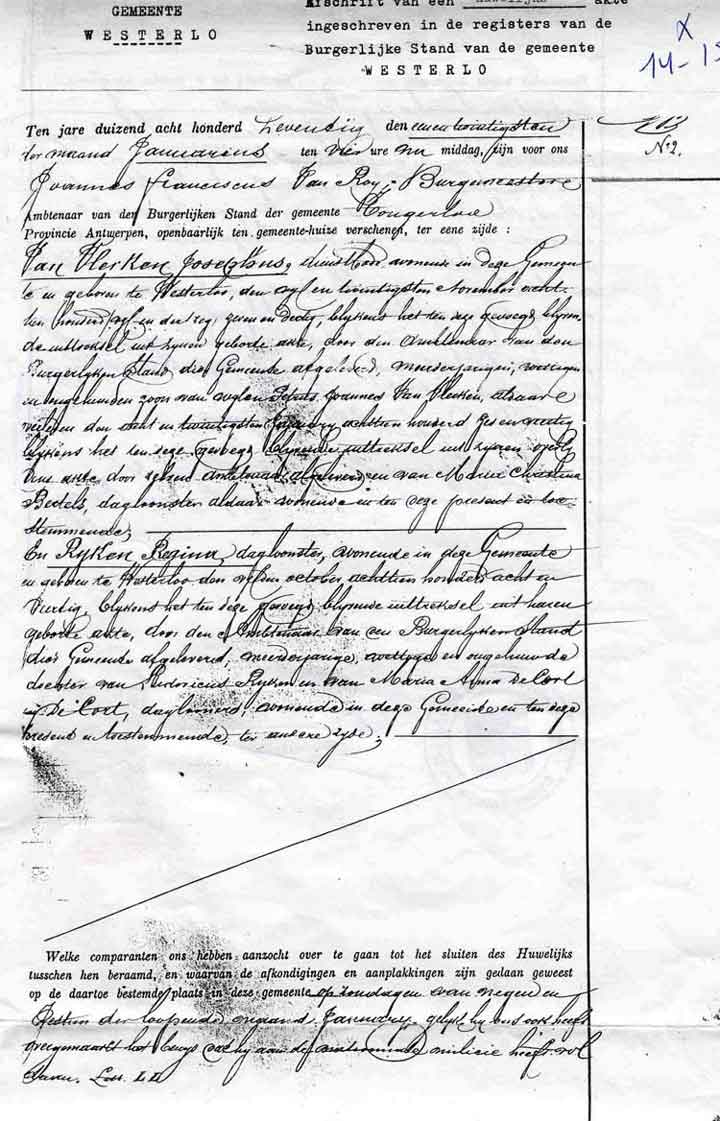 GEMEENTE
WESTERLO
Afschrift van een huwelijks akte
ingeschreven in de registers van de
Burgerlijke Stand van de gemeente
WESTERLO
X
14-1
N°2.
Ten jare duizend acht honderd zeventig den eenentwintigsten
der maand Januarius ten vier ure na middag, zijn voor ons
Joannes Franciscus Van Roy, Burgemeester
Ambtenaar van den Burgerlijken Stand der gemeente Tongerloo
Provincie Antwerpen, openbaarlijk ten gemeente-huize verschenen, ter eene zijde :
Van Herken Josephus, dienstbode, wonende in deze Gemeen
te en geboren te Westerloo, den en twintigsten November acht
tien honderd zeven en dertig, blykens het ten deze gevoegd blyven
de uittreksel uit zynen geboorte akte, door den Ambtenaar van den
Burgerlyken Stand dier Gemeente afgeleverd, meerderjarigen, wettigen
en ongehuwden zoon van Joannes Van Herken, aldaar
overleden den acht en twintigsten January achttien honderd zes en veertig
blykens het ten deze gevoegd blyvende uittreksel uit zynen overly
dens akte, door zelven Ambtenaar afgeleverd, en van Maria Christina
Bertels, dagloonster aldaar wonende en ten deze present en toe-
stemmende,
En Ryken Regina, dagloonster, wonende in deze Gemeente
en geboren te Westerloo den october achttien honderd acht en
veertig, blykens het ten deze gevoegd blyvende uittreksel uit haren
geboorte akte, door den Ambtenaar van den Burgerlyken Stand
dier Gemeente afgeleverd, meerderjarige, wettige en ongehuwde
dochter van Ryken en van Maria Anna De Cort
De Cort, dagloners, wonende in deze Gemeente en ten deze
present en toestemmende, ter andere zyde;
Welke comparanten ons hebben aanzocht over te gaan tot het sluiten des Huwelijks
tusschen hen beraamd, en waarvan de afkondigingen en aanplakkingen zijn gedaan geweest
op de daartoe bestemde plaats in deze gemeente op zondagen van negen en
zestien der loopende maand January, gelyk hy ons ook heeft
overgemaakt het bewys dat hy aan de militie heeft vol
daan.